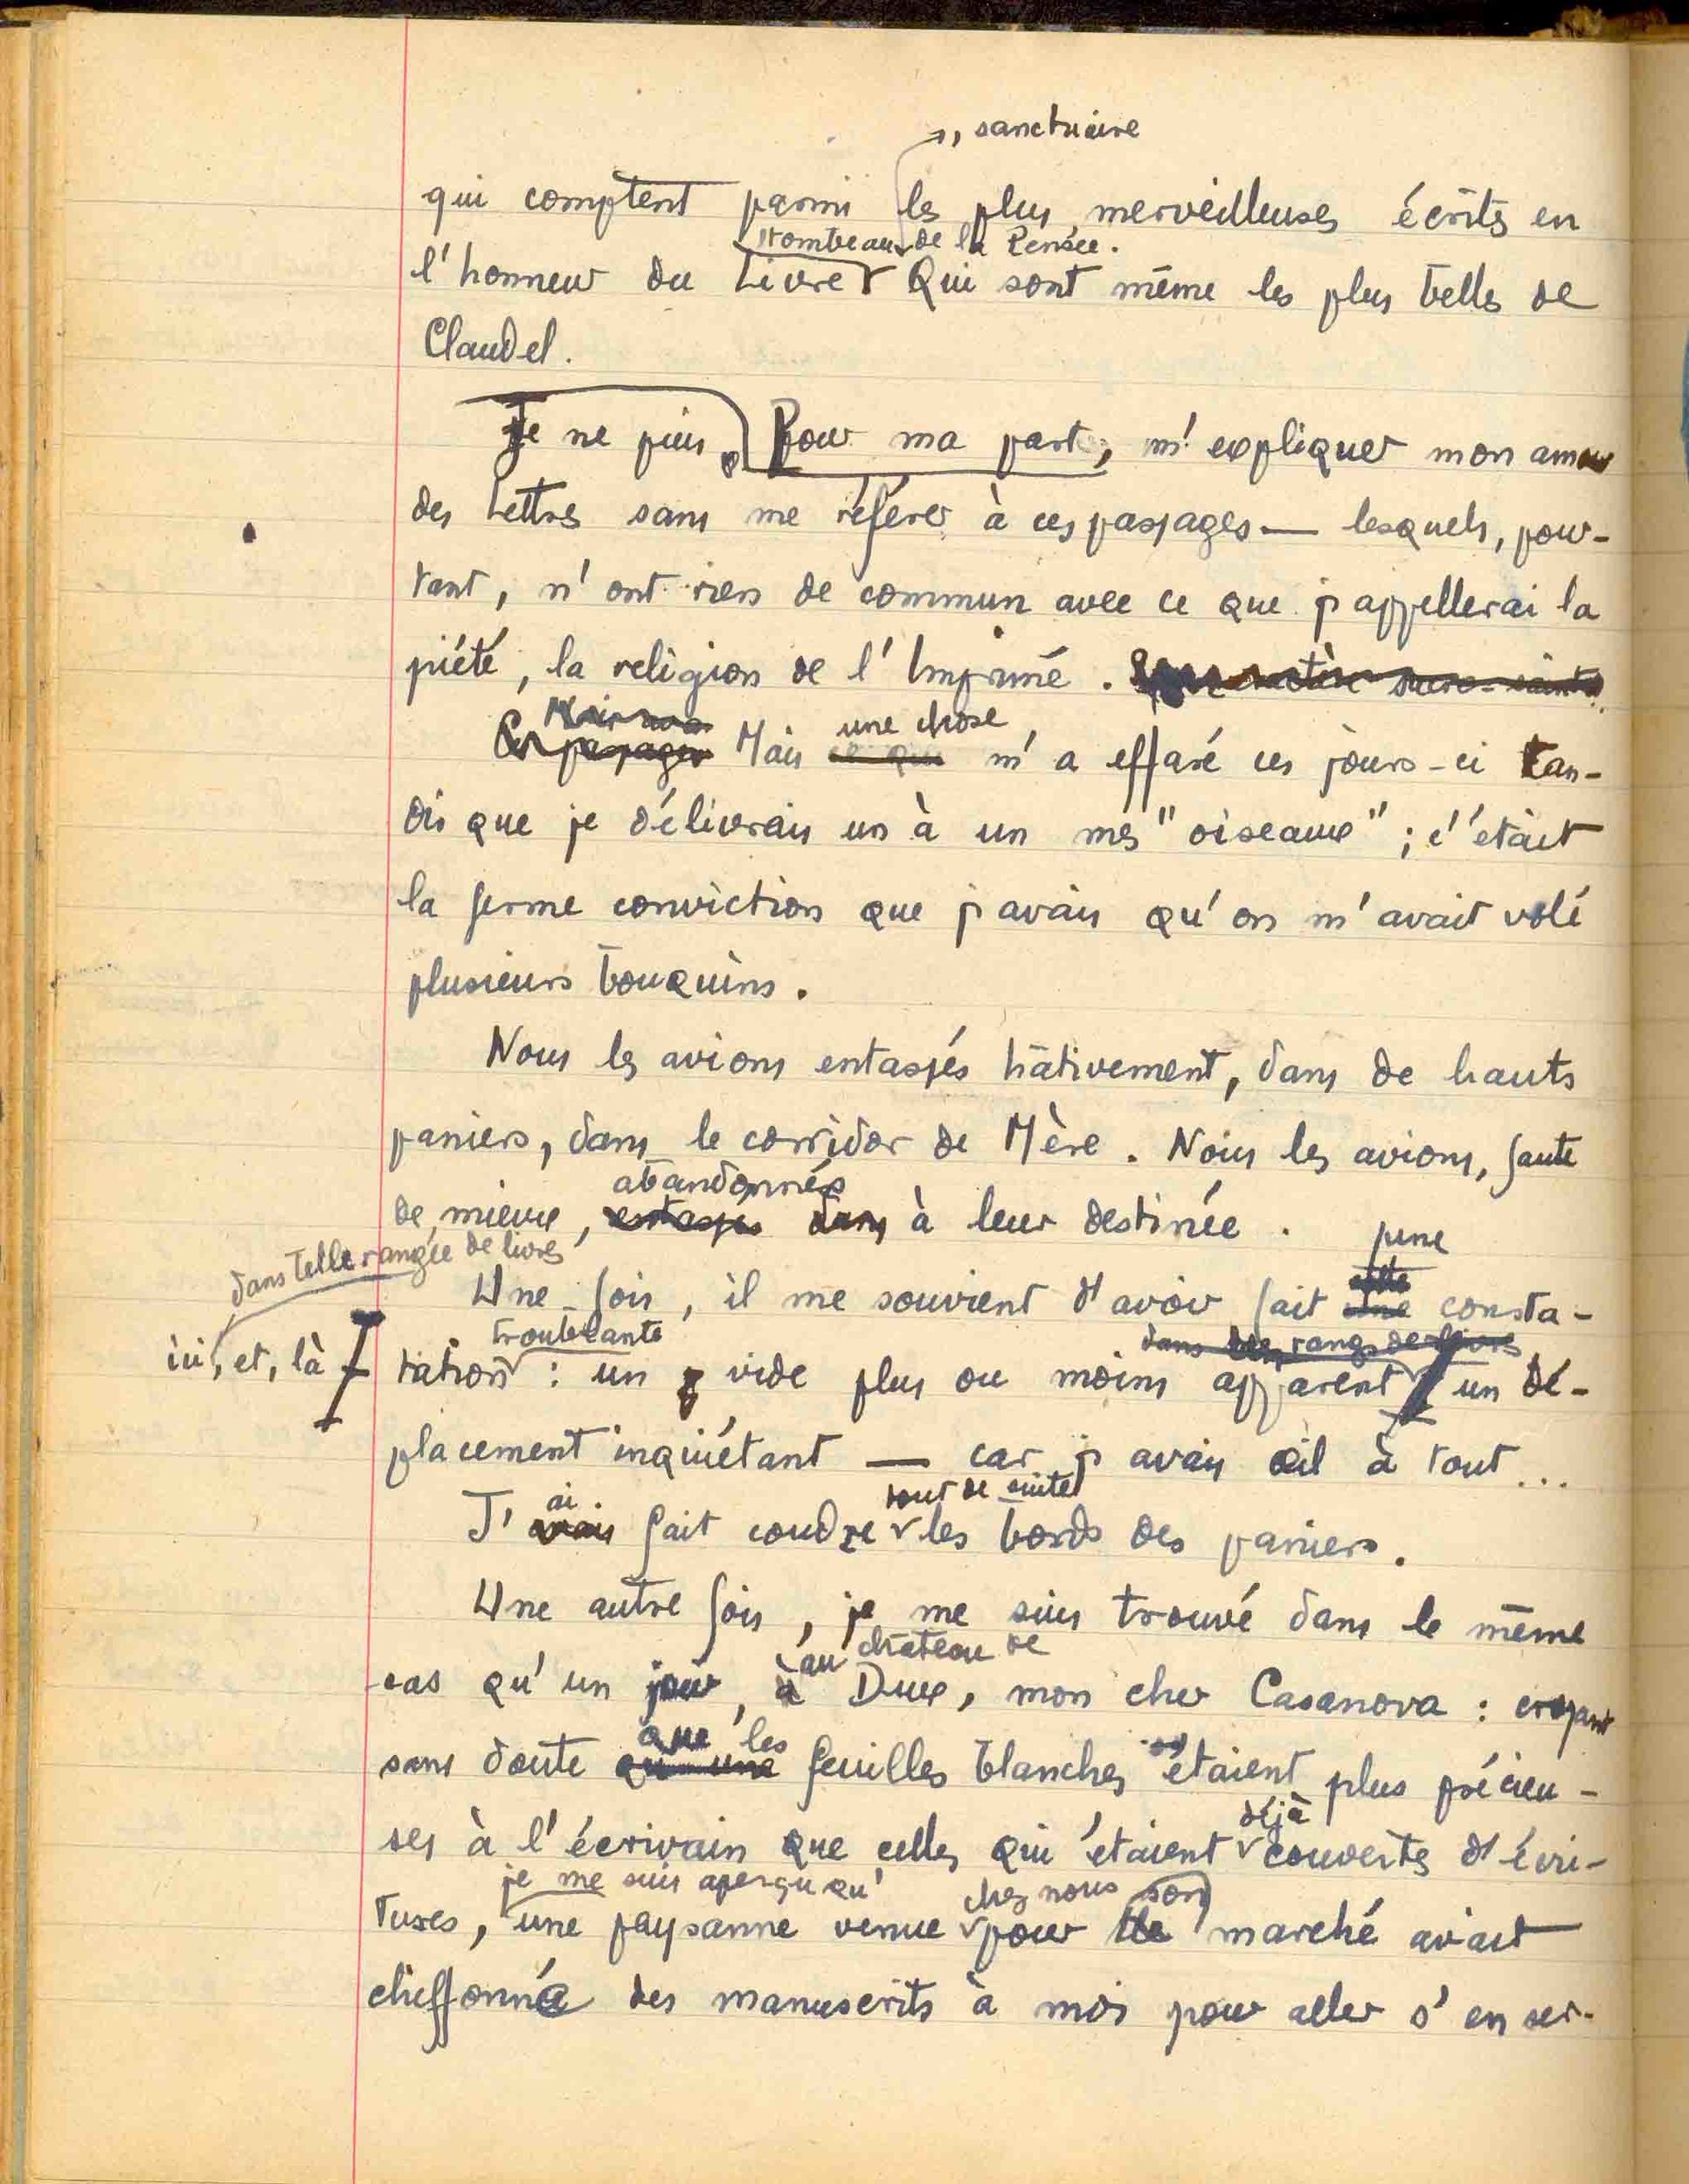 , sanctuaire
qui comptent parmi les plus merveilleuses écrits en
tombeau de la Pensée.
l'honneur du Livre Qui sont même les plus belles de
Claudel.
Je ne puis, Pour ma part, m'expliquer mon amour
des Lettres sans me référer à ces passages — lesquels, pour-
tant, n'ont rien de commun avec ce que j'appellerai la
piété, la religion de l'Imprimé. sacro-saint
Mais une chose
Ces passages Mais ce qui m'a effaré ces jours-ci tan-
dis que je délivrais un à un mes "oiseaux" ; c'était
la ferme conviction que j'avais qu'on m'avait volé
plusieurs bouquins.
Nous les avions entassés hâtivement, dans de hauts
paniers, dans le corridor de Mère. Nous les avions, faute
abandonnés
de mieux, entassés dans à leur destinée.
dans telle rangée de livres
une
Une fois, il me souvient d'avoir fait une consta-
troublante
dans les rangs de livres
ici, et, là
tation : un vide plus ou moins apparent un dé-
placement inquiétant — car j'avais œil à tout...
ai tout de suite
J'avais fait coudre les bords des paniers.
Une autre fois, je me suis trouvé dans le même
au château de
cas qu'un jour, à Dux, mon cher Casanova : croyant
que les
sans doute qu'une feuilles blanches étaient plus précieu-
déjà
ses à l'écrivain que celles qui étaient couvertes d'écri-
je me suis aperçu qu' chez nous son
tures, une paysanne venue pour le marché avait
chiffonné des manuscrits à moi pour aller s'en ser-